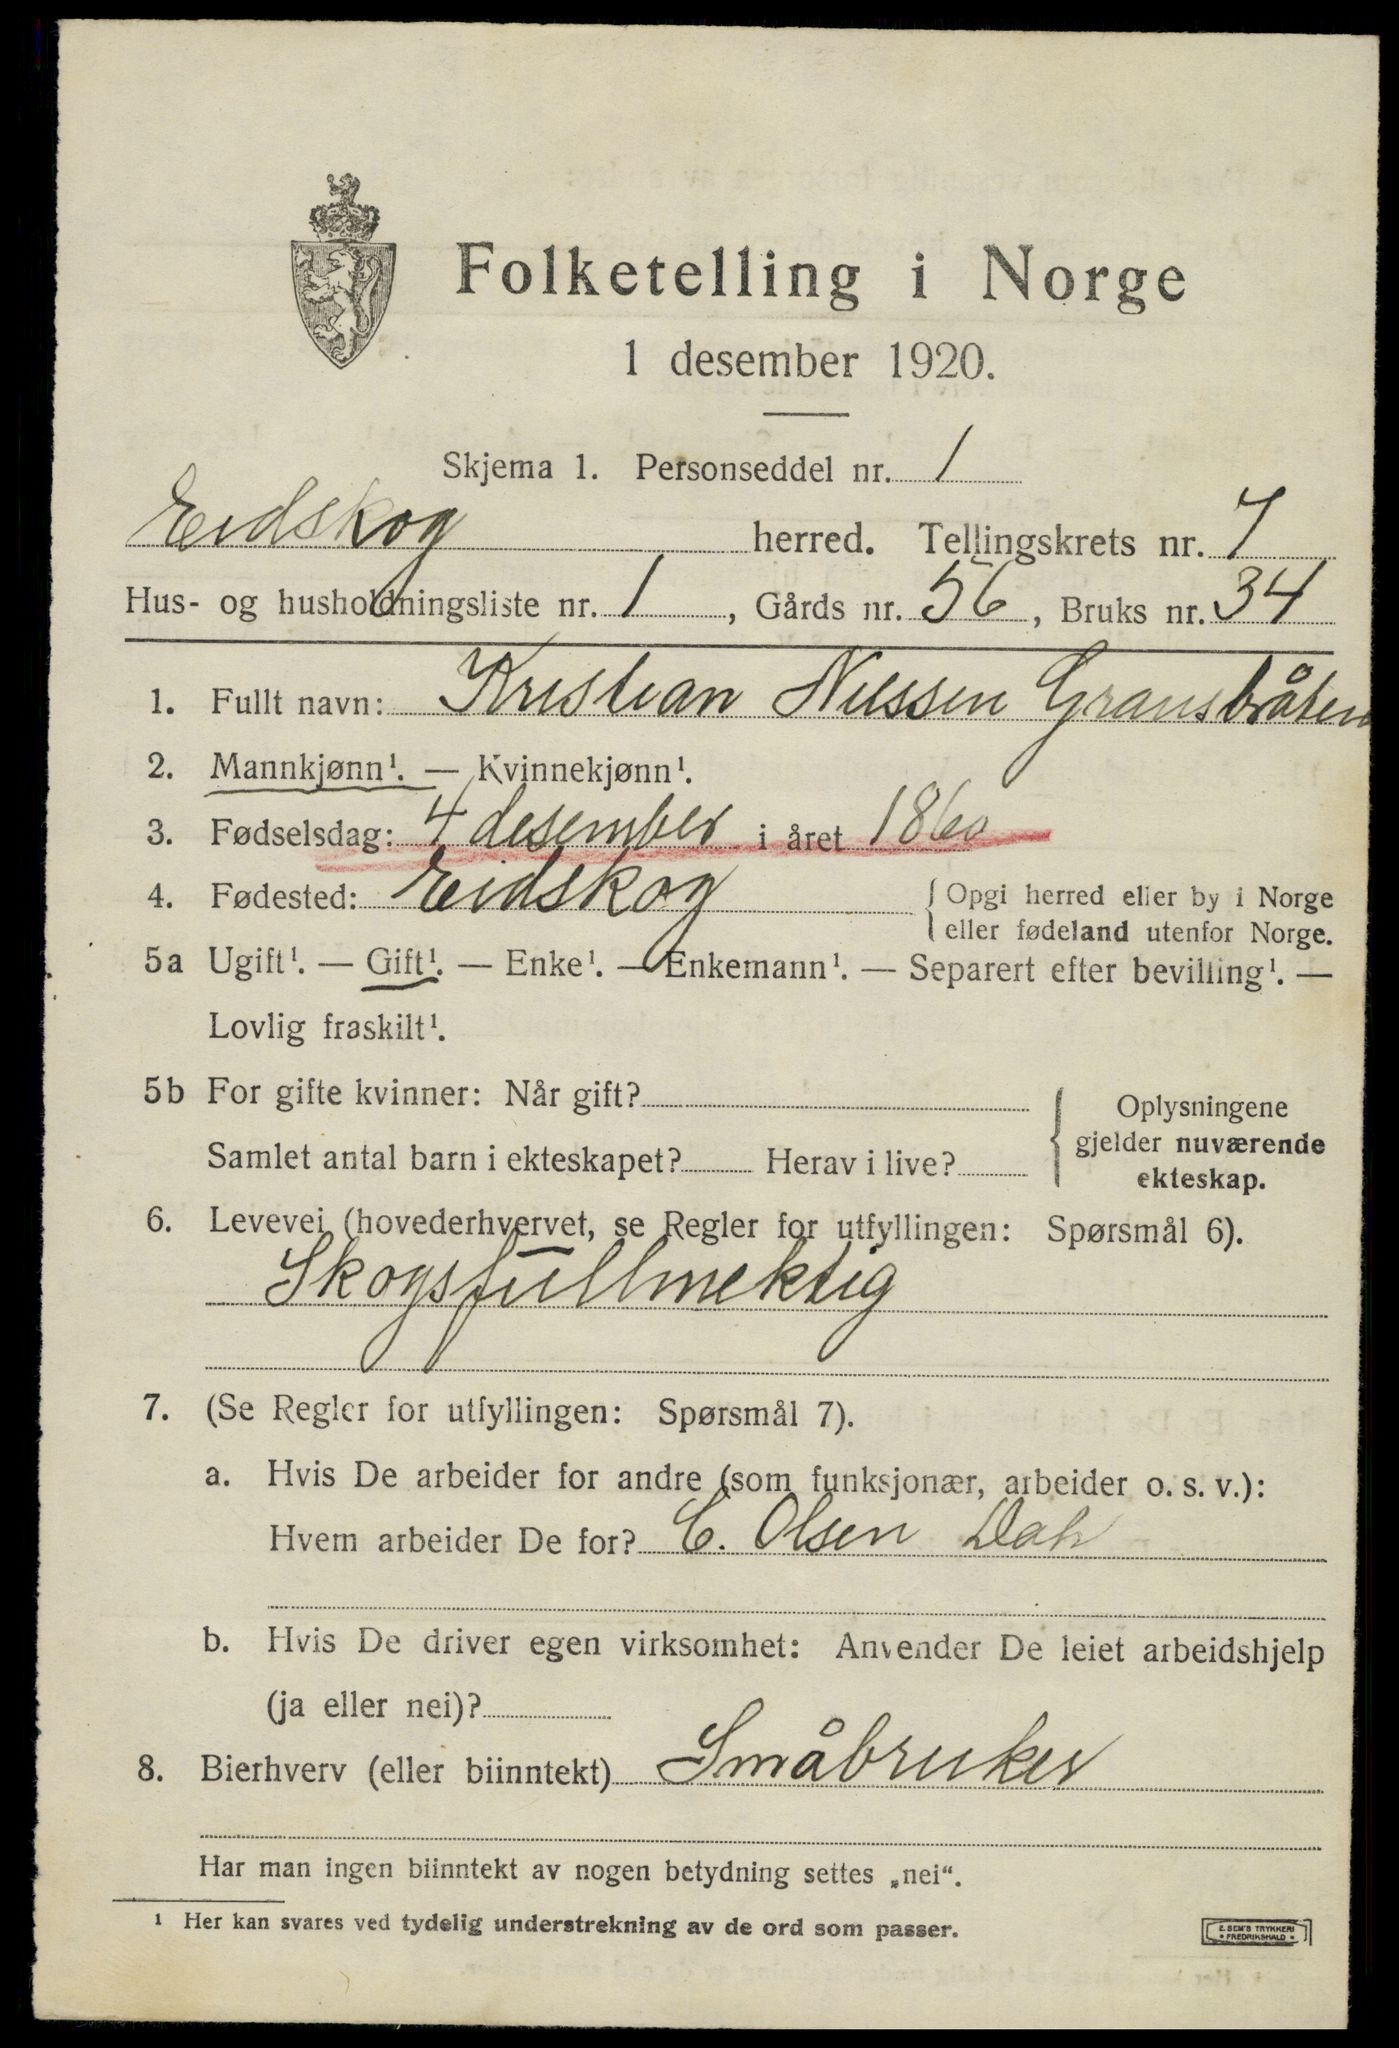 Folketelling i Norge
1 desember 1920.
Skjema 1. Personseddel nr. 1
Eidskog herred. Tellingskrets nr. 7
Hus- og husholdningsliste nr. 1, Gårds nr. 56, Bruks nr. 34
1. Fullt navn: Kristian Nilssen Gransbråten
2. Mannkjønn¹. — Kvinnekjønn¹.
3. Fødselsdag: 4 desember i året 1860
4. Fødested: Eidskog { Opgi herred eller by i Norge
eller fødeland utenfor Norge.
5a Ugift¹. — Gift¹. — Enke¹. — Enkemann¹. — Separert efter bevilling¹. —
Lovlig fraskilt¹.
5b For gifte kvinner: Når gift? { Oplysningene
gjelder nuværende
ekteskap.
Samlet antal barn i ekteskapet? Herav i live?
6. Levevei (hovederhvervet, se Regler for utfyllingen: Spørsmål 6).
Skogsfullmektig
7. (Se Regler for utfyllingen: Spørsmål 7).
a. Hvis De arbeider for andre (som funksjonær, arbeider o. s. v.):
Hvem arbeider De for? C. Olsen Dah
b. Hvis De driver egen virksomhet: Anvender De leiet arbeidshjelp
(ja eller nei)?
8. Bierhverv (eller biinntekt) Småbruker
Har man ingen biinntekt av nogen betydning settes „nei“.
¹ Her kan svares ved tydelig understrekning av de ord som passer.
E. SEM'S TRYKKERI
• FREDRIKSHALD •